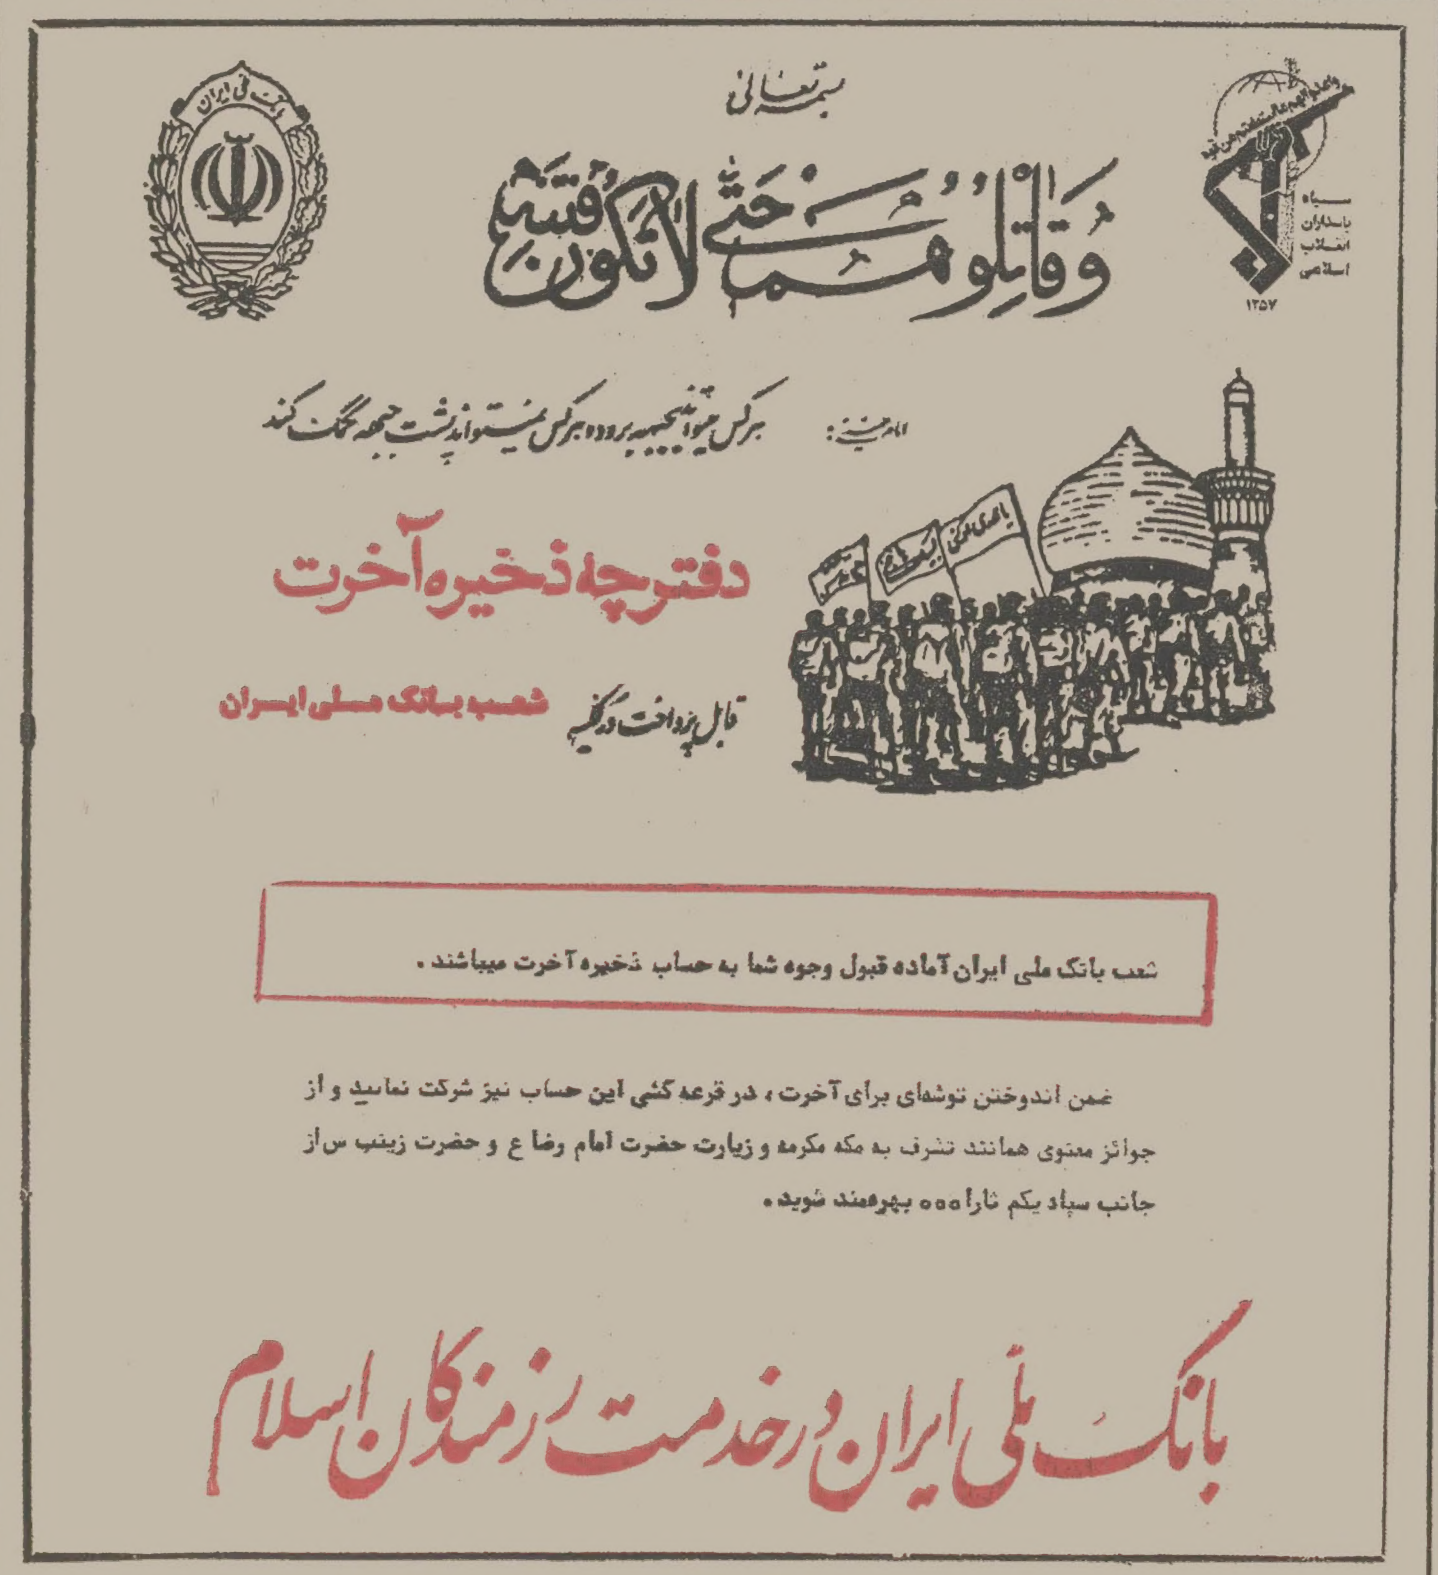 بسمه تعالی
بانک ملی ایران
وَقاتِلُوهُمْ حَتّیٰ لاتَکُونَ فِتْنَةٌ
سپاه
پاسداران
انقلاب
اسلامی
۱۳۵۷
امام خمینی:
هرکس میتواند بجبهه برود و هرکس نمیتواند پشت جبهه کمک کند
دفترچه ذخیره آخرت
قابل پرداخت در کلیه شعب بانک ملی ایران
شعب بانک ملی ایران آماده قبول وجوه شما به حساب ذخیره آخرت میباشند .
ضمن اندوختن توشه‌ای برای آخرت ، در قرعه کشی این حساب نیز شرکت نمایید و از
جوائز معنوی همانند تشرف به مکه مکرمه و زیارت حضرت امام رضا ع و حضرت زینب س از
جانب سپاه یکم ثارا... بهره‌مند شوید .
بانک ملی ایران در خدمت رزمندگان اسلام